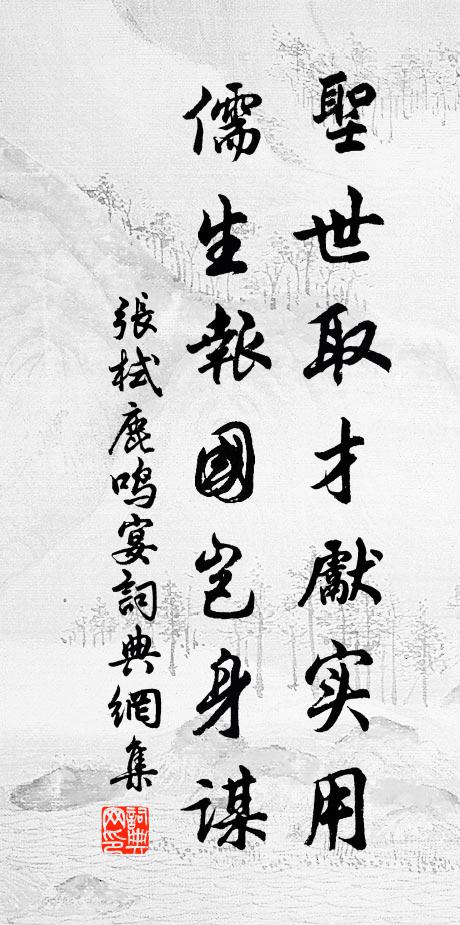 聖世取才獻实用
儒生報國豈身謀
張栻鹿鸣宴詞典網集
詞典
网印